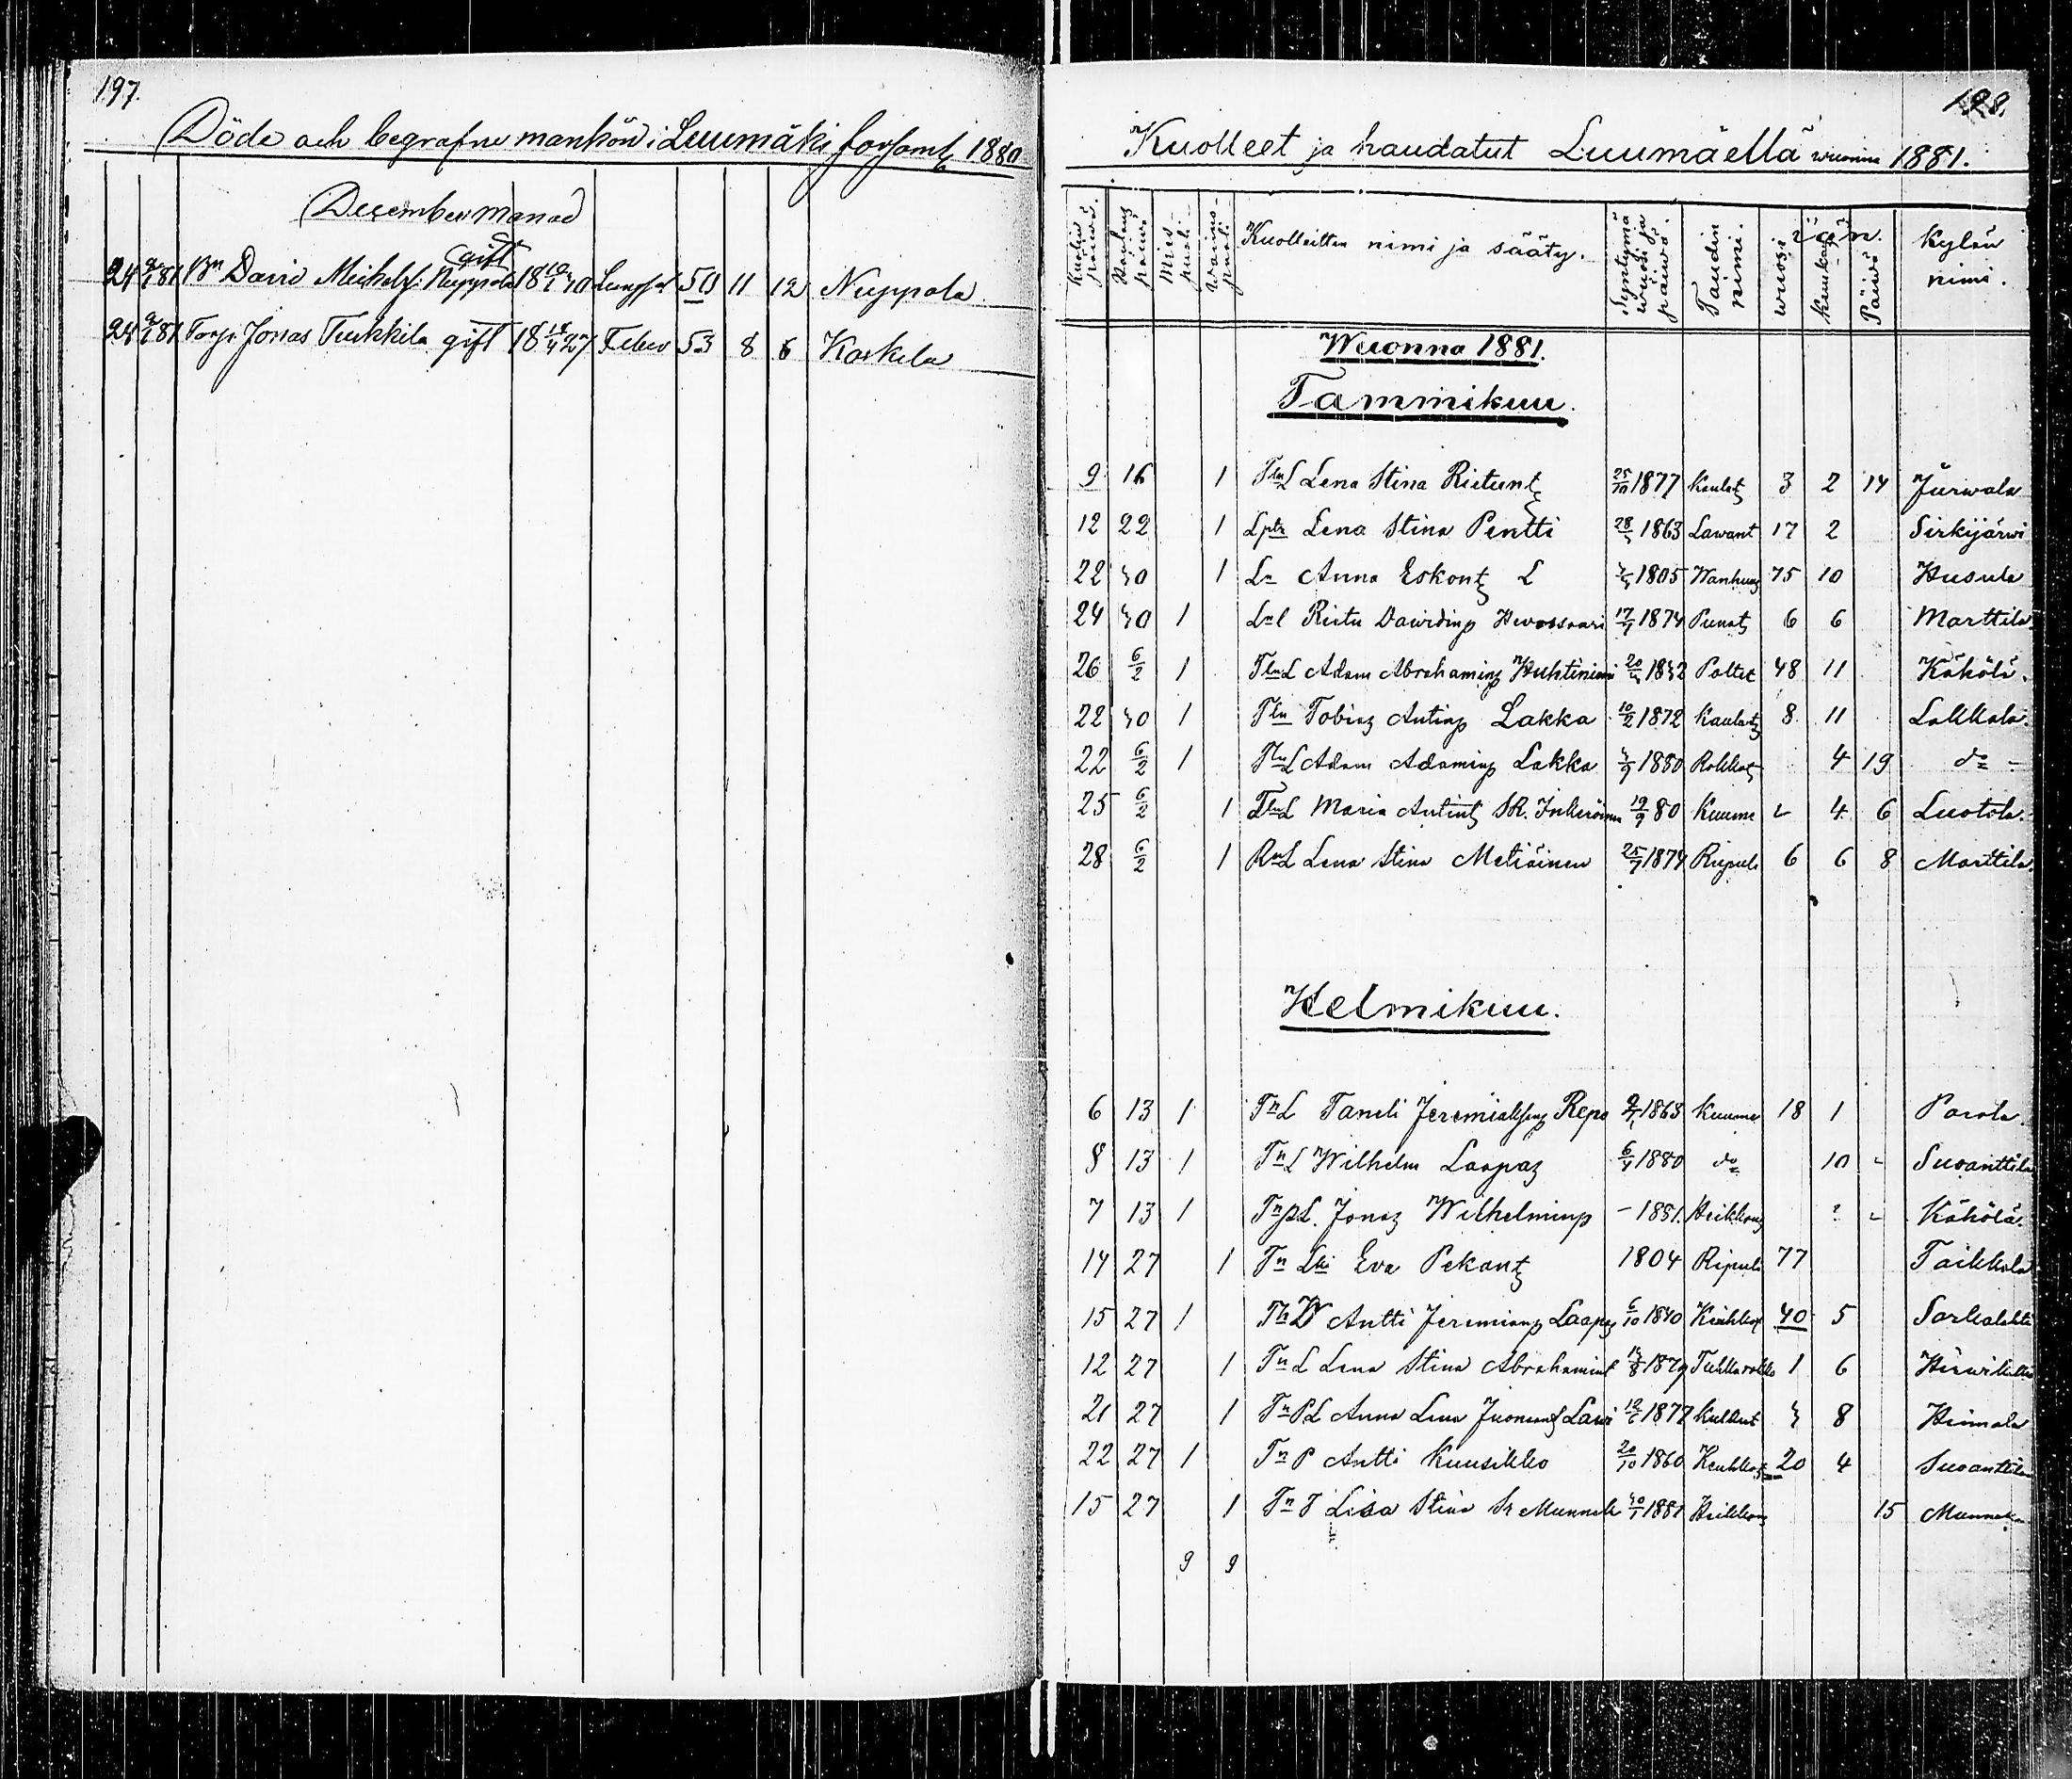 197.
Döde och begrafne mankön i Luumäki församl. 1880
December månad
24 9/1 81 Bn David Michelss: Nuppola gift 18 10/1 30 Lungsot 50 11 12 Nuppola
24 9/1 81 Torp. Jonas Turkkila gift 18 18/4 27 Feber 53 8 6 Kaskela
198.
Kuolleet ja haudatut Luumäellä wuonna 1881.
Kuolin päiwä. Hautaus päiwä Mies-puoli- Waimo-puoli- Kuolleitten nimi ja sääty. Syntymä wuosi ja päiwä. Taudin nimi. ijän. wuosi kuukausi Päiwä Kylän nimi.
Wuonna 1881.
Tammikuu.
9 16 1 Tln L Lena Stina Rietunt 25/10 1877 Kaulat 3 2 14 Jurwala
12 22 1 Lptr Lena Stina Pentti 28/ 1863 Lawant 17 2 Sirkijärwi
22 30 1 Ln Anna Eskont L 1805 Wanhuus 75 10 Husula
24 30 1 Ln l Riitu Dawidinp Hwossaari 17/7 1874 Punat 6 6 Marttila
26 6/2 1 Tln L Adam Abrahaminp Huhtiniemi 20/ 1832 Poltet 48 11 Kähölä.
22 30 1 Tln Tobias Antinp Lakka 10/2 1872 Kaulat 8 11 Lakkala.
22 6/2 1 Tln L Adam Adaminp Lakka 3/9 1880 Rokkot 4 19 do -
25 6/2 1 Tln L Maria Antint SR. Inkeröinen 19/9 80 Kuume 4 6 Luotola.
28 6/2 1 Rn L Lena Stina Metiäinen 25/7 1874 Ripuli 6 6 8 Marttila.
Helmikuu.
6 13 1 Tn L Taneli Jeremiaksenp Repo 2/1 1863 Kuume 18 1 Parola.
8 13 1 Tn L Wilhelm Laapas 6/4 1880 do 10 - Suoanttila
7 13 1 Tn pL. Jonas Wilhelminp - 1881. Heikkous ? - Kähölä.
14 27 1 Tn Lki Eva Pekant 1804 Ripuli 77 Taikkala
15 27 1 Tln W Antti Jeremianp Laapas 6/10 1840 Keuhkot 40 5 Sarkalahti
12 27 1 Tn L Lena Stina Abrahamint 13/8 1879 Tuhkarokko 1 6 Hirwikallio
21 27 1 Tn PL Anna Lena Juonaant Lawi 12/6 1877 Kulkut 3 8 Heimala
22 27 1 Tn P Antti Kuusikko 20/10 1860 Keuhkot 20 4 Suoanttila
15 27 1 Tn T Lisa Stina Sr Munnek 30/1 1881 Heikkous 15 Munne
9 9